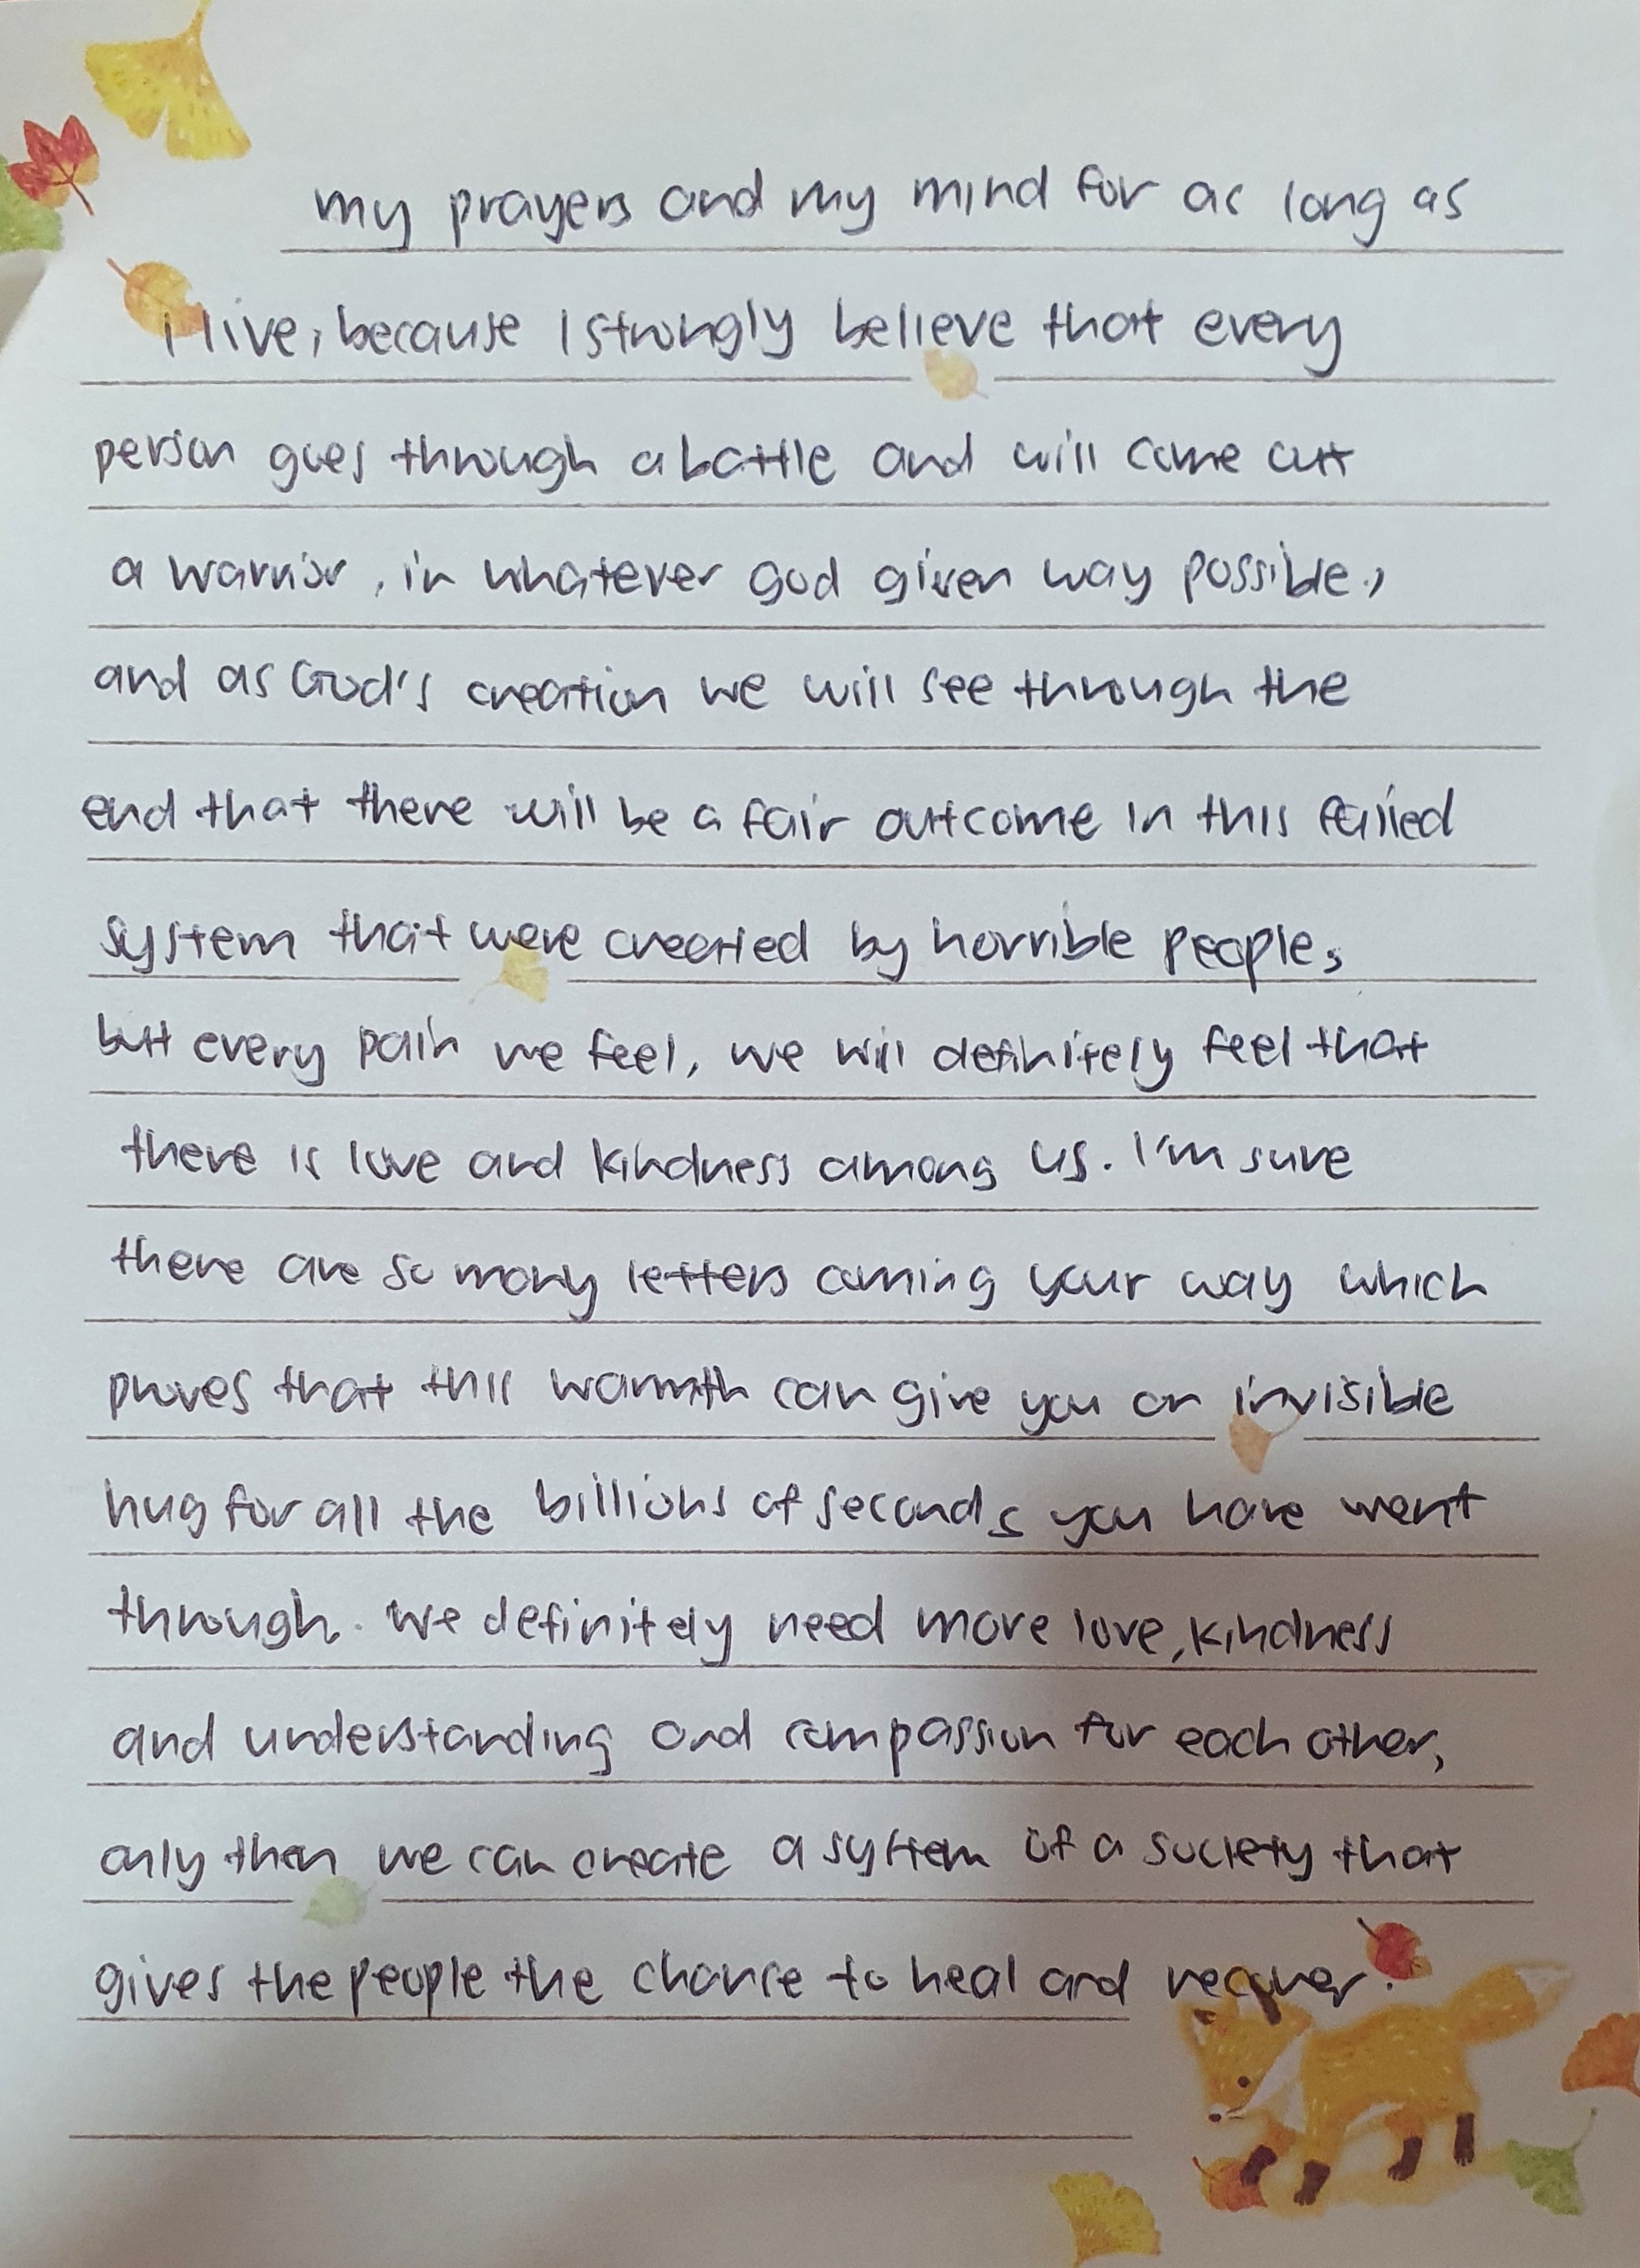 my prayers and my mind for as long as
i live, because I strongly believe that every
person goes through a battle and will come out
a warrior, in whatever god given way possible,
and as God's creation we will see through the
end that there will be a fair outcome in this failed
system that were created by horrible people,
but every pain we feel, we will definitely feel that
there is love and kindness among us. I'm sure
there are so many letters coming your way which
proves that this warmth can give you an invisible
hug for all the billions of seconds you have went
through. We definitely need more love, kindness
and understanding and compassion for each other,
only then we can create a system of a society that
gives the people the chance to heal and recover.